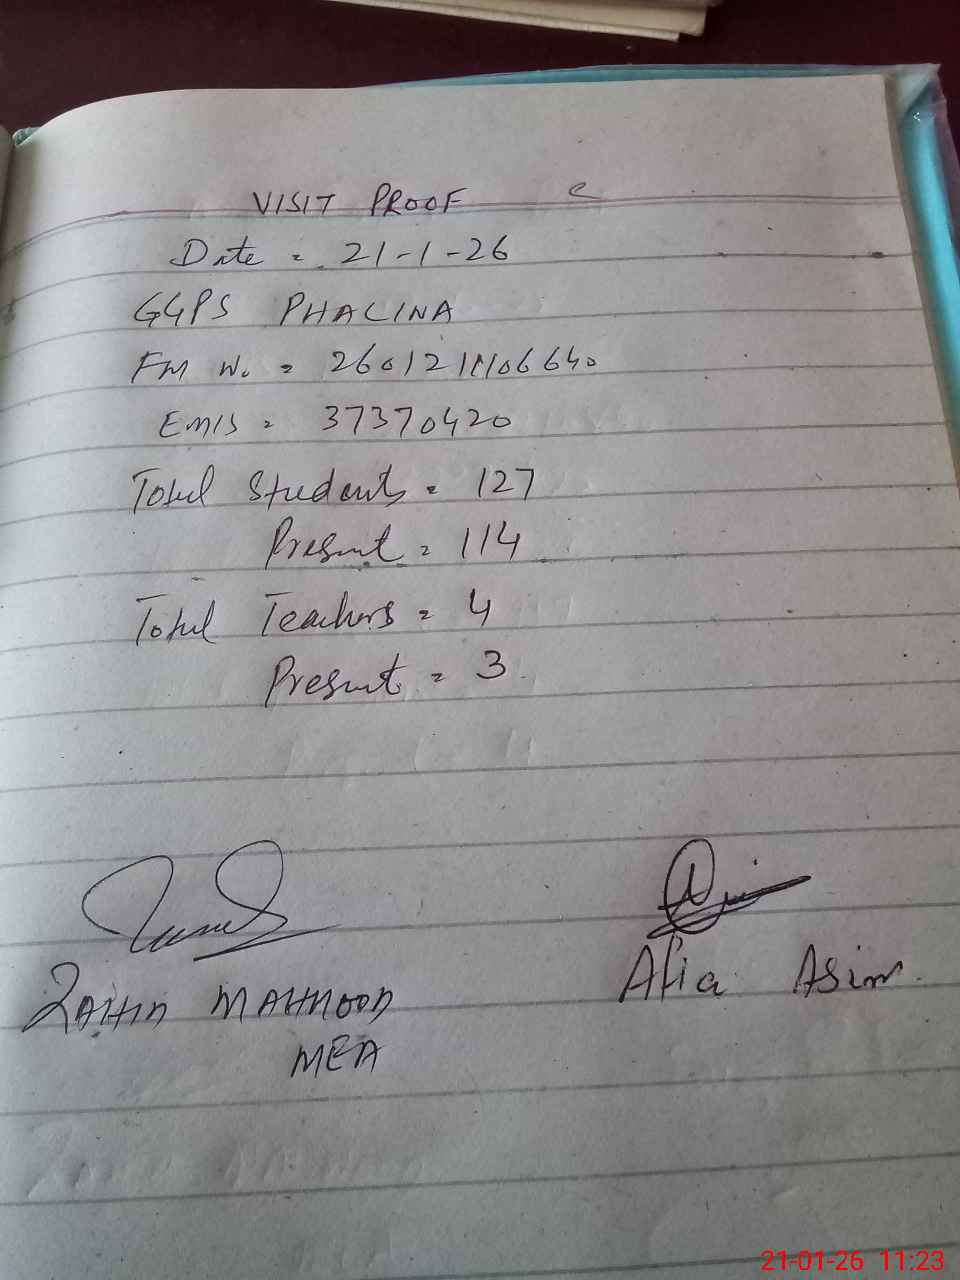 VISIT PROOF
Date = 21-1-26
GGPS PHALINA
FM No = 2601211106640
EMIS = 37370420
Total Students = 127
Present = 114
Total Teachers = 4
Present = 3
MAHMOOD
MEA
Afia Asim
21-01-26 11:23